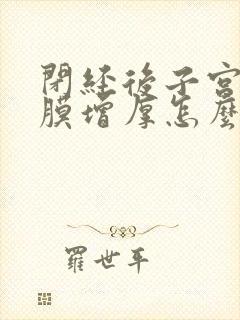 閉經後子宮
膜增厚怎麼
羅世平